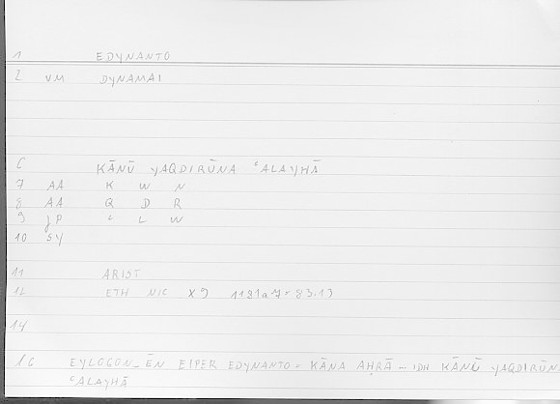 1 EDYNANTO
2 VM DYNAMAI
6 KĀNŪ YAQDIRŪNA ʿALAYHĀ
7 AA K W N
8 AA Q D R
9 JP ʿ L W
10 SY
11 ARIST
12 ETH NIC X 9
14
16 EYLOGON_ĒN EIPER EDYNANTO - KĀNA AḤRĀ - IDH KĀNŪ YAQDIRŪN
ʿALAYHĀ